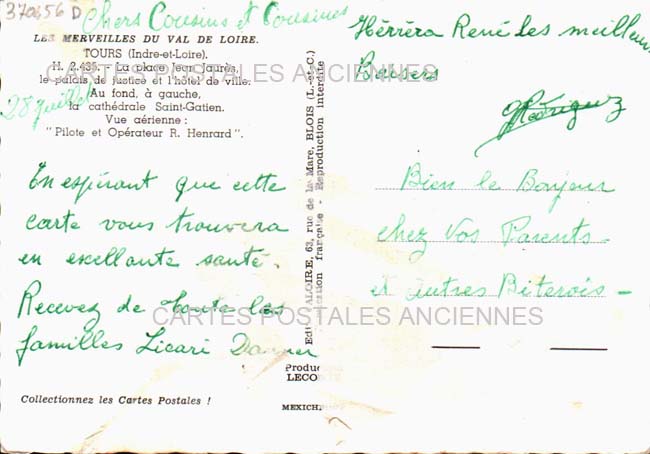 370656 D
Chers Cousins et Cousines
LES MERVEILLES DU VAL DE LOIRE.
TOURS (Indre-et-Loire).
H. 2.435. - La place Jean Jaurès,
le palais de justice et l'hôtel de ville.
Au fond, à gauche,
la cathédrale Saint-Gatien.
Vue aérienne :
"Pilote et Opérateur R. Henrard".
28 juillet
En espérant que cette
carte vous trouvera
en excellante santé.
Recevez de toute les
familles Licari
Collectionnez les Cartes Postales !
VALOIRE, 63, rue de la Mare, BLOIS (L.-et-C.)
française - Reproduction interdite
Herrèra René les meilleurs
Baisers
Rodriguez
Bien le Bonjour
chez Vos Parents-
et autres Biterois-
CARTES POSTALES ANCIENNES
CARTES POSTALES ANCIENNES